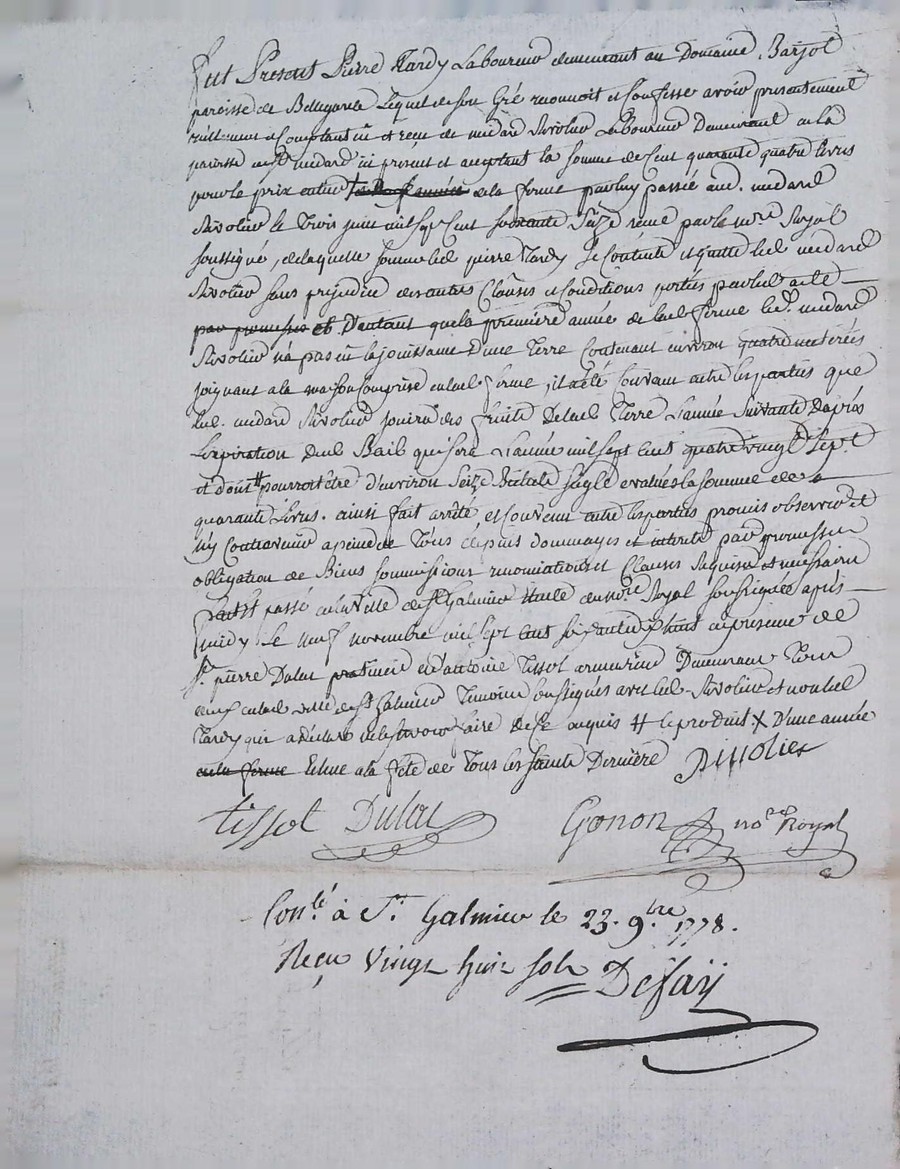 fut Present Pierre Tardy Laboureur demeurant au Domaine Barjol
paroisse de Bellegarde Lequel de son Gré reconnoit et confesse avoir presentement
réellement et Comptant eû et recu de médard Rivolier Laboureur Demeurant en la
paroisse de St médard icy présent et acceptant la somme de Cent quarante quatre livres
pour le prix de la ferme par luy passée aud. médard
Rivolier le Trois juin mil sept Cent soixante Seize reçue par le nore Royal
soussigné, de laquelle somme led pierre Tardy se Contente et quitte led médard
Rivolier sans préjudice des autres Clauses et Conditions portées par led acte
par promesses et D'autant que la première année de lad ferme led. médard
Rivolier n'a pas eû la jouissance D'une Terre Contenant environ quatre
joignant a la maison Comprise en lad ferme, il a été Convenu entre les parties que
led. médard Rivolier jouira des fruits De lad Terre L'année Suivante D'après
L'expiration dud Bail qui sera L'année mil sept Cent quatre vingt Sept
et dont # pourroit être D'environ Seize Bichets seigle evalués la somme de
quarante Livres. ainsi fait arrêté, et Convenu entre les parties promis observer et
n'y Contrevenir a peine de Tous depens dommages et interets par promesses
obligation de Biens soumissions renonciations et Clauses Requises et necessaires
fait et passé en la ville de St Galmier étude du nore Royal soussigné après
midy Le neuf novembre mil Sept Cent soixante dix huit en presence de
Sr. pierre Dulac praticien et d'antoine Tissot armurier Demeurant Tous
deux en lad ville de St Galmier Temoins soussignés avec led. Rivolier et non led
Tardy qui a déclaré ne le sçavoir faire de ce enquis # le produit X D'une année
en la ferme Echue a la fête de Tous les Saints Derniere Rivolier
tissot Dulac Gonon nore Royal
Conlé à St. Galmier le 23. 9.bre 1778.
Reçu vingt huit sols Desaÿ